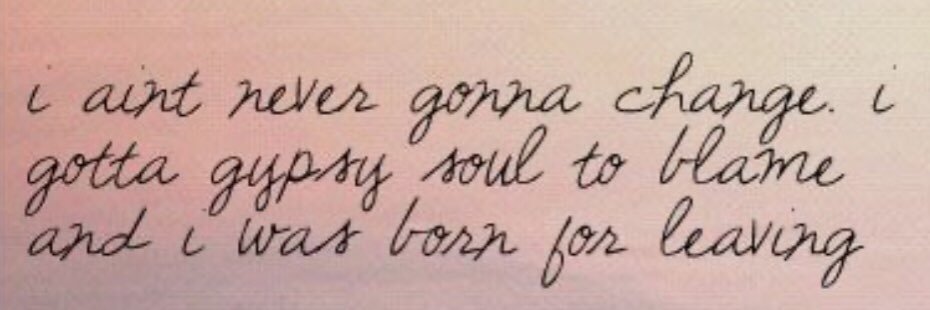 i aint never gonna change. i
gotta gypsy soul to blame
and i was born for leaving